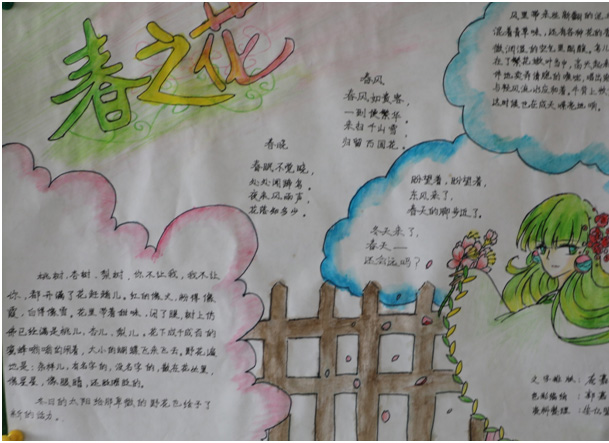 春之花
风里带来些新翻的泥
混着青草味，还有各种花的香
微润湿的空气里酝酿。鸟儿
在了繁花嫩叶当中，高兴起来
与轻风流水应和着。牛背上
这时候也在成天嘹亮地响。
春风
春风如贵客，
一到便繁华。
来扫千山雪，
归留万国花。
春晓
春眠不觉晓，
处处闻啼鸟。
夜来风雨声，
花落知多少。
盼望着，盼望着，
东风来了，
春天的脚步近了。
冬天来了，
春天——
还会远吗？
桃树、杏树、梨树，你不让我，我不让
你，都开满了花赶趟儿。红的像火，粉得像
霞，白得像雪。花里带着甜味，闭了眼，树上仿
佛已经满是桃儿、杏儿、梨儿。花下成千成百的
蜜蜂嗡嗡的闹着，大小的蝴蝶飞来飞去。野花遍
地是：杂样儿，有名字的，没名字的，散在花丛里，
像星星，像眼睛，还眨呀眨的。
冬日的太阳给那卑微的野花也给予了
文字排版：
色彩描绘：郭嘉
资料整理：